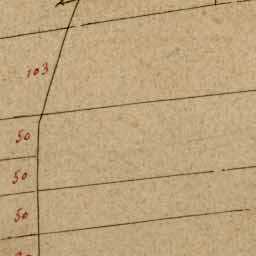 103
50
50
50